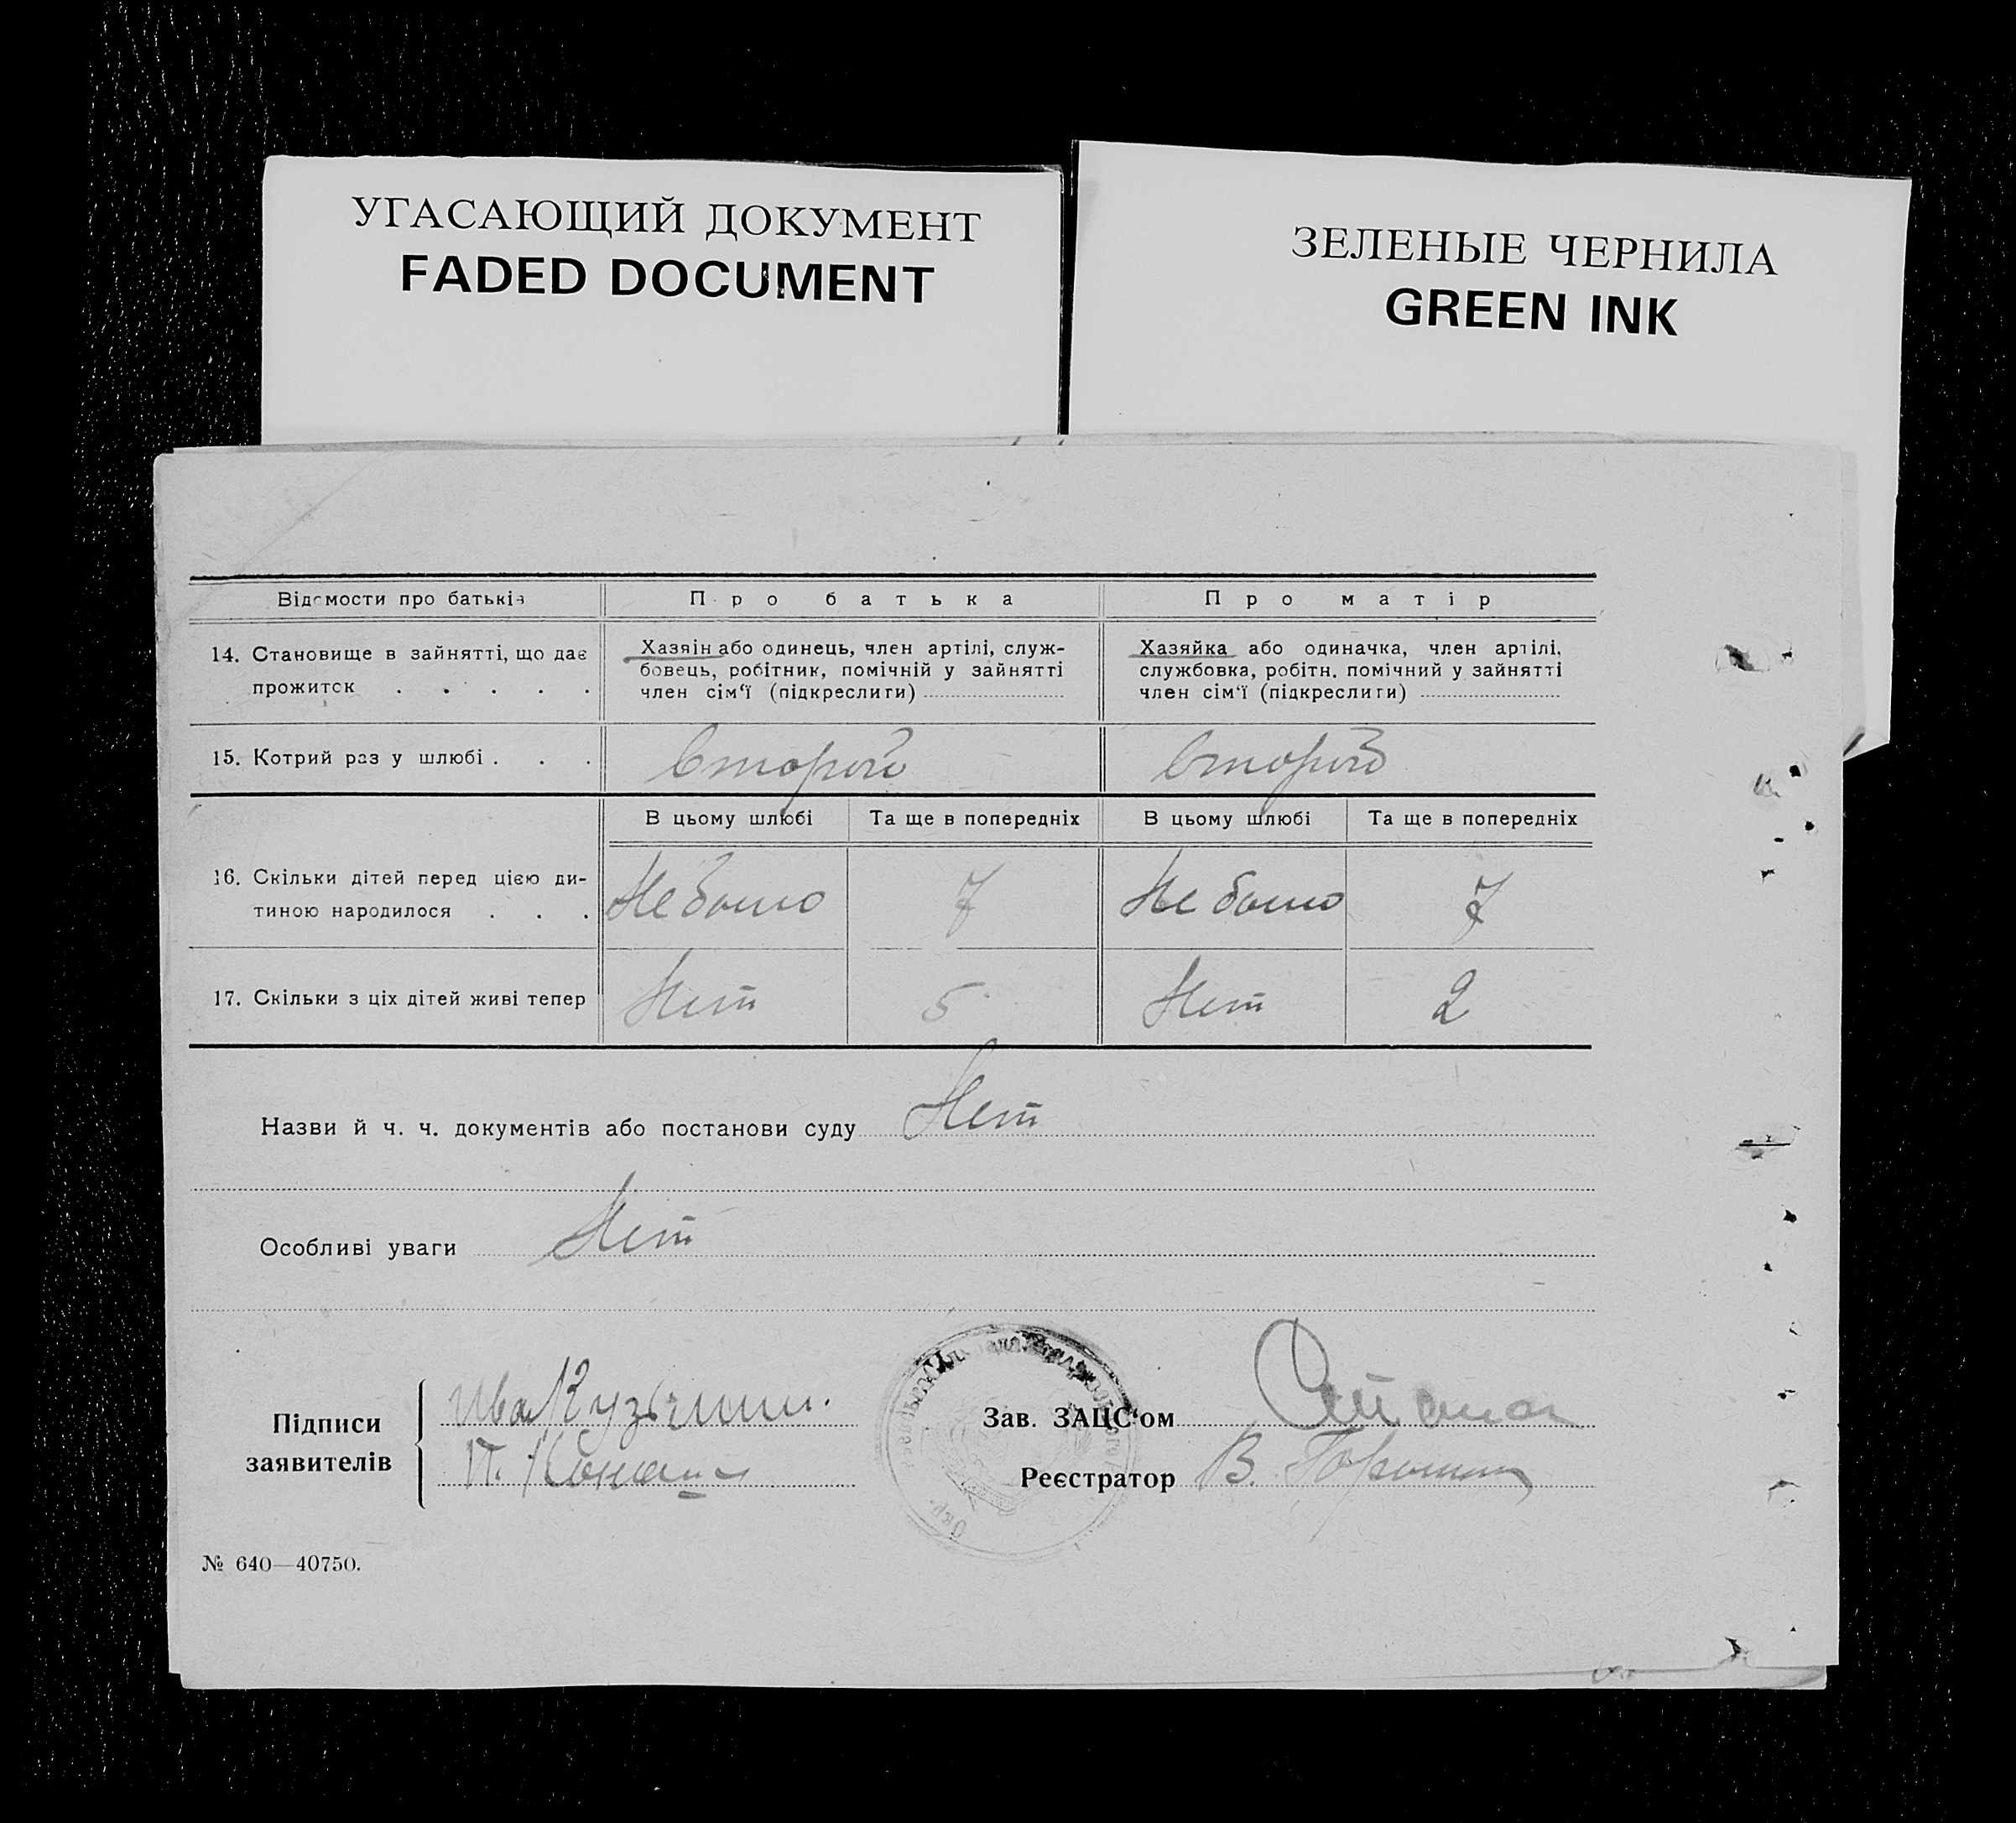 УГАСАЮЩИЙ ДОКУМЕНТ
FADED DOCUMENT
ЗЕЛЕНЫЕ ЧЕРНИЛА
GREEN INK
Відомости про батьків
Про батька
Про матір
14. Становище в зайнятті, що дає
прожиток . . . . .
Хазяін або одинець, член артілі, служ-
бовець, робітник, помічній у зайнятті
член сім'ї (підкреслити)
Хазяйка або одиначка, член артілі,
службовка, робітн. помічний у зайнятті
член сім'ї (підкреслити)
15. Котрий раз у шлюбі . . .
второй
второй
В цьому шлюбі
Та ще в попередніх
В цьому шлюбі
Та ще в попередніх
16. Скільки дітей перед цією ди-
тиною народилося . . .
Не было
7
Не было
7
17. Скільки з ціх дітей живі тепер
Нет
5
Нет
2
Назви й ч. ч. документів або постанови суду Нет
Особливі уваги Нет
Підписи
заявителів
П.
Зав. ЗАЦС'ом
Реєстратор В.
№ 640—40750.